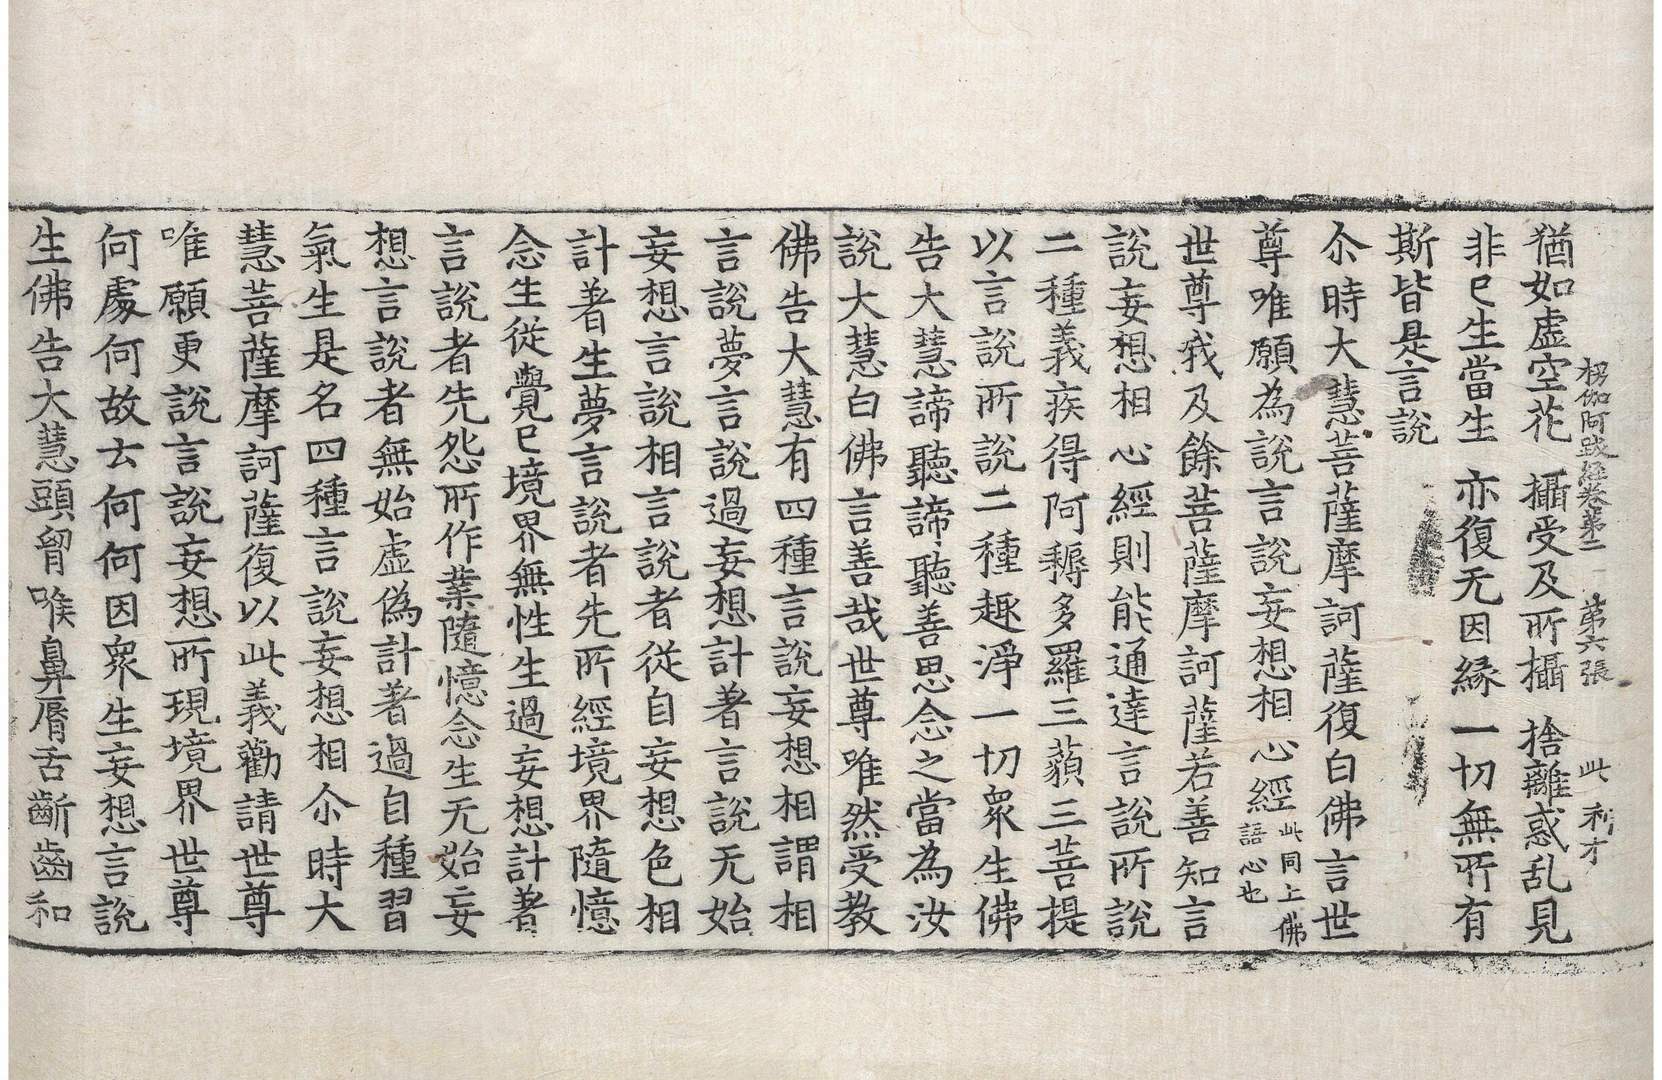 楞伽阿跋經卷第二 第六張 此 利才
猶如虛空花 攝受及所攝 捨離惑乱見
非已生當生 亦復无因緣 一切無所有
斯皆是言說
尒時大慧菩薩摩訶薩復白佛言世
尊唯願為說言說妄想相心經此同上佛語心也
世尊我及餘菩薩摩訶薩若善知言
說妄想相心經則能通達言說所說
二種義疾得阿耨多羅三藐三菩提
以言說所說二種趣淨一切眾生佛
告大慧諦聽諦聽善思念之當為汝
說大慧白佛言善哉世尊唯然受教
佛告大慧有四種言說妄想相謂相
言說夢言說過妄想計著言說无始
妄想言說相言說者從自妄想色相
計著生夢言說者先所經境界隨憶
念生從覺已境界無性生過妄想計著
言說者先怨所作業隨憶念生无始妄
想言說者無始虛偽計著過自種習
氣生是名四種言說妄想相尒時大
慧菩薩摩訶薩復以此義勸請世尊
唯願更說言說妄想所現境界世尊
何處何故云何何因眾生妄想言說
生佛告大慧頭胷喉鼻脣舌齗齒和